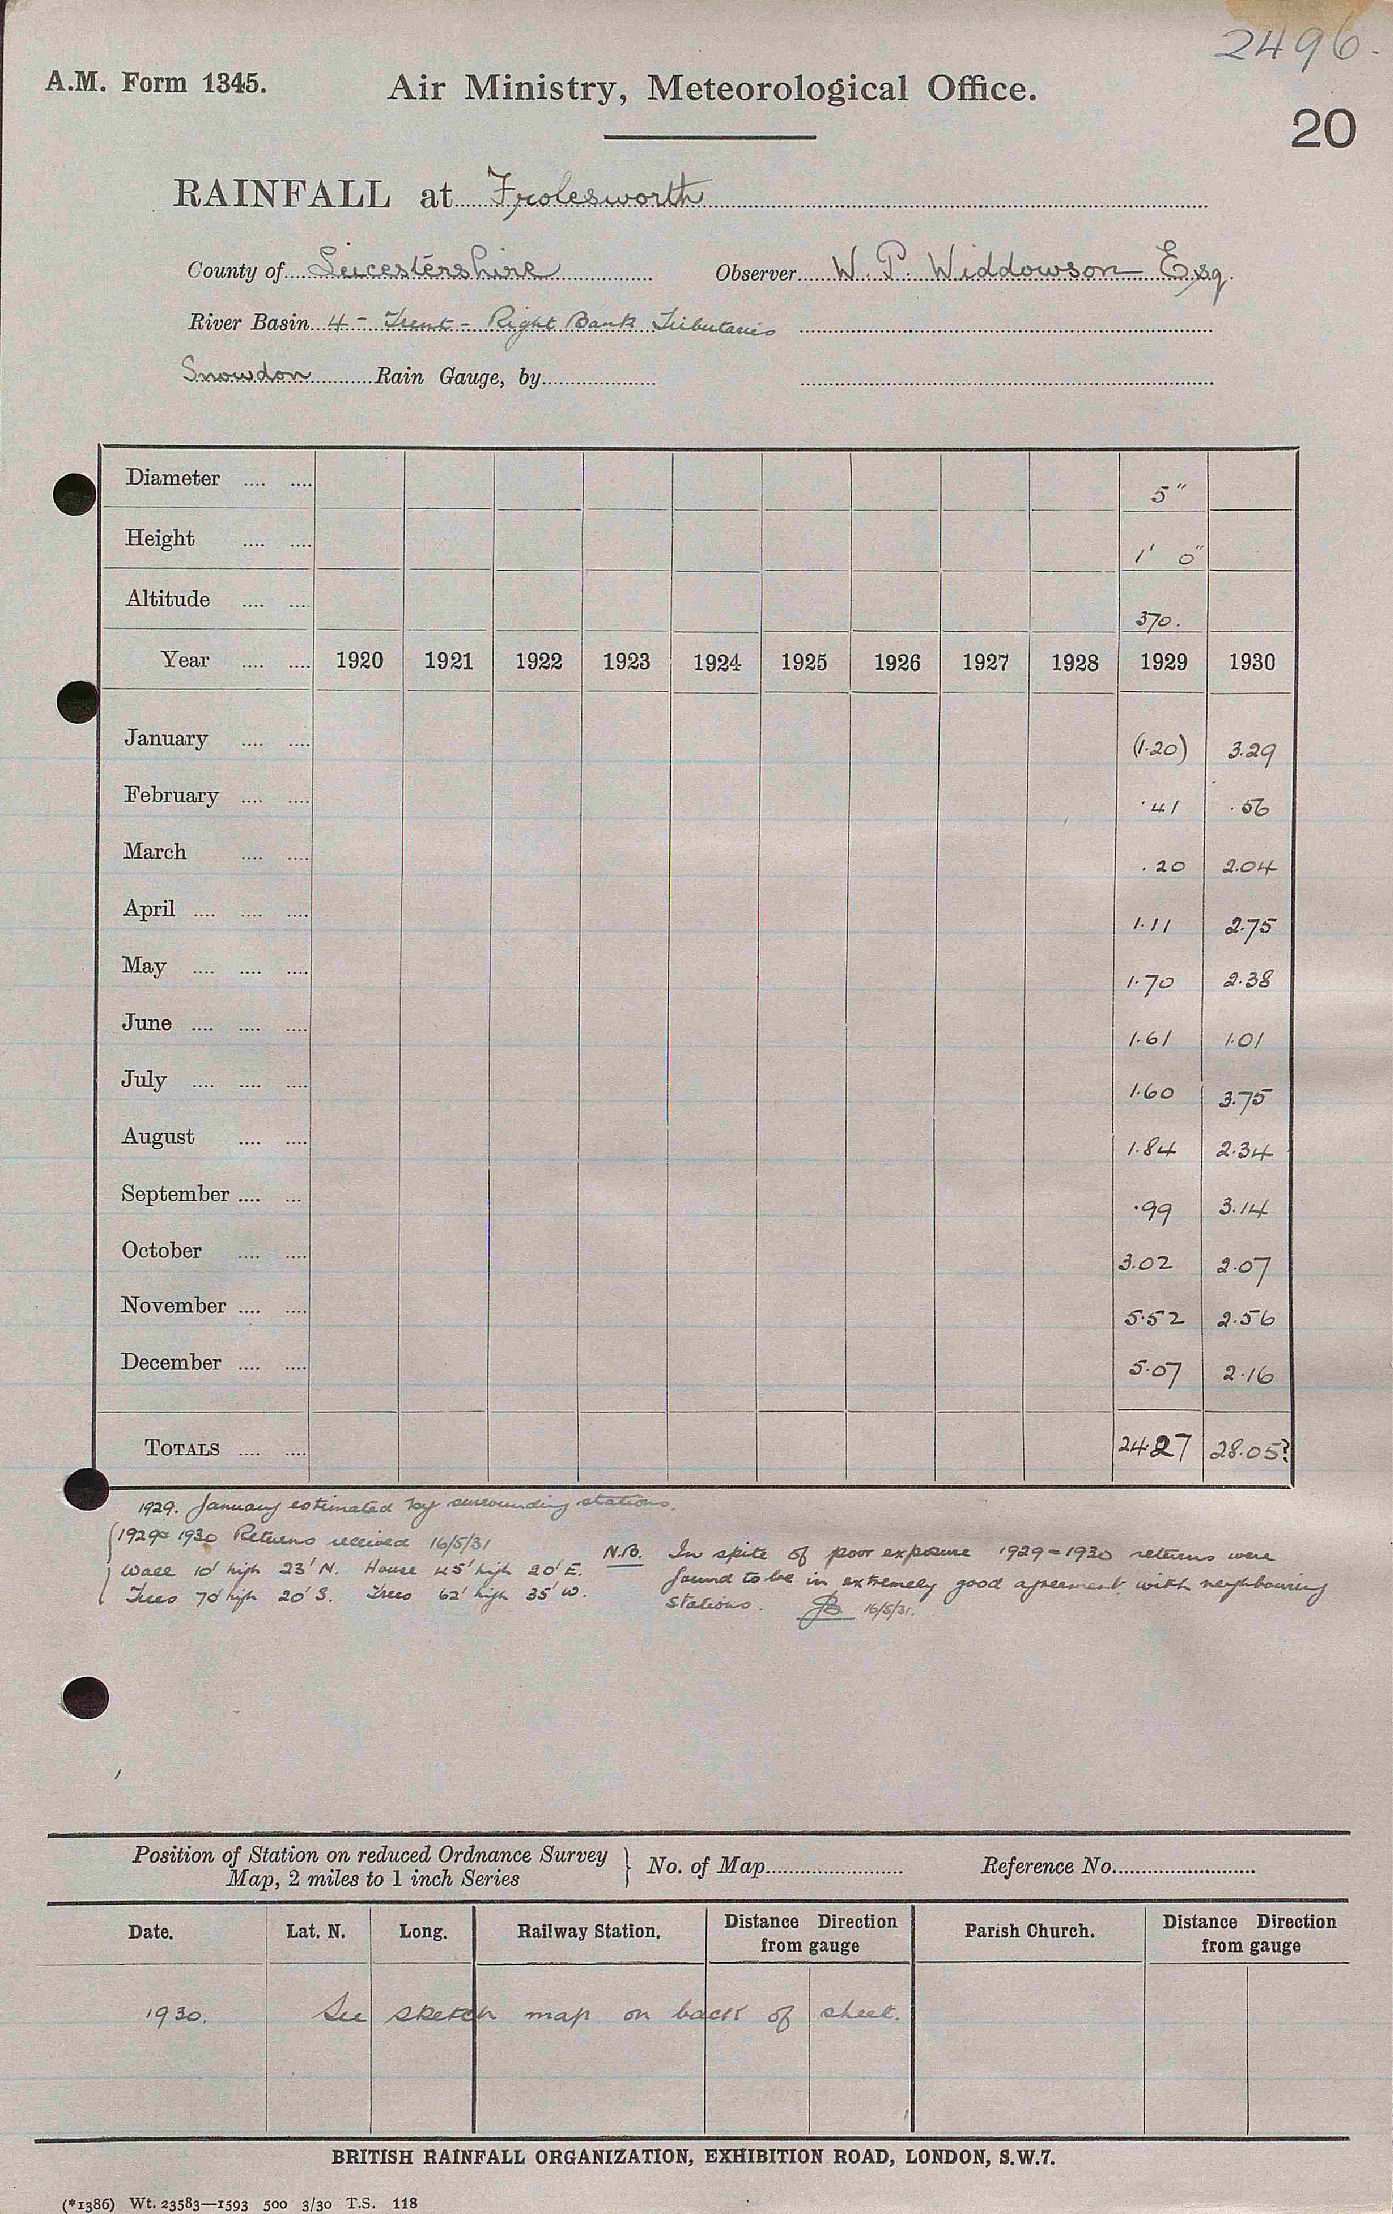 2496.
A.M. Form 1345. Air Ministry, Meteorological Office.
20
RAINFALL at Frolesworth
County of Leicestershire Observer W. P. Widdowson Esq.
River Basin 4 - Trent - Right Bank Tributaries
Snowdon Rain Gauge, by
Diameter .... .... 5"
Height .... .... 1' 0"
Altitude .... .... 370.
Year .... .... 1920 1921 1922 1923 1924 1925 1926 1927 1928 1929 1930
January .... .... (1.20) 3.29
February .... .... .41 .56
March .... .... .20 2.04
April .... .... .... 1.11 2.75
May .... .... .... 1.70 2.38
June .... .... .... 1.61 1.01
July .... .... .... 1.60 3.75
August .... .... 1.84 2.34
September .... .... .99 3.14
October .... .... 3.02 2.07
November .... .... 5.52 2.56
December .... .... 5.07 2.16
TOTALS .... .... 24.27 28.05?
1929. January estimated by surrounding stations.
1929 & 1930 Returns received 16/5/31
Wall 10' high 23' N. House 45' high 20' E.
Trees 70' high 20' S. Trees 62' high 35' W.
N.B. In spite of poor exposure 1929-1930 returns were
found to be in extremely good agreement with neighbouring
stations. 16/5/31.
Position of Station on reduced Ordnance Survey
Map, 2 miles to 1 inch Series } No. of Map Reference No.
Date. Lat. N. Long. Railway Station. Distance Direction from gauge Parish Church. Distance Direction from gauge
1930. See sketch map on back of sheet.
BRITISH RAINFALL ORGANIZATION, EXHIBITION ROAD, LONDON, S.W.7.
(*1386) Wt. 23583—1593 500 3/30 T.S. 118